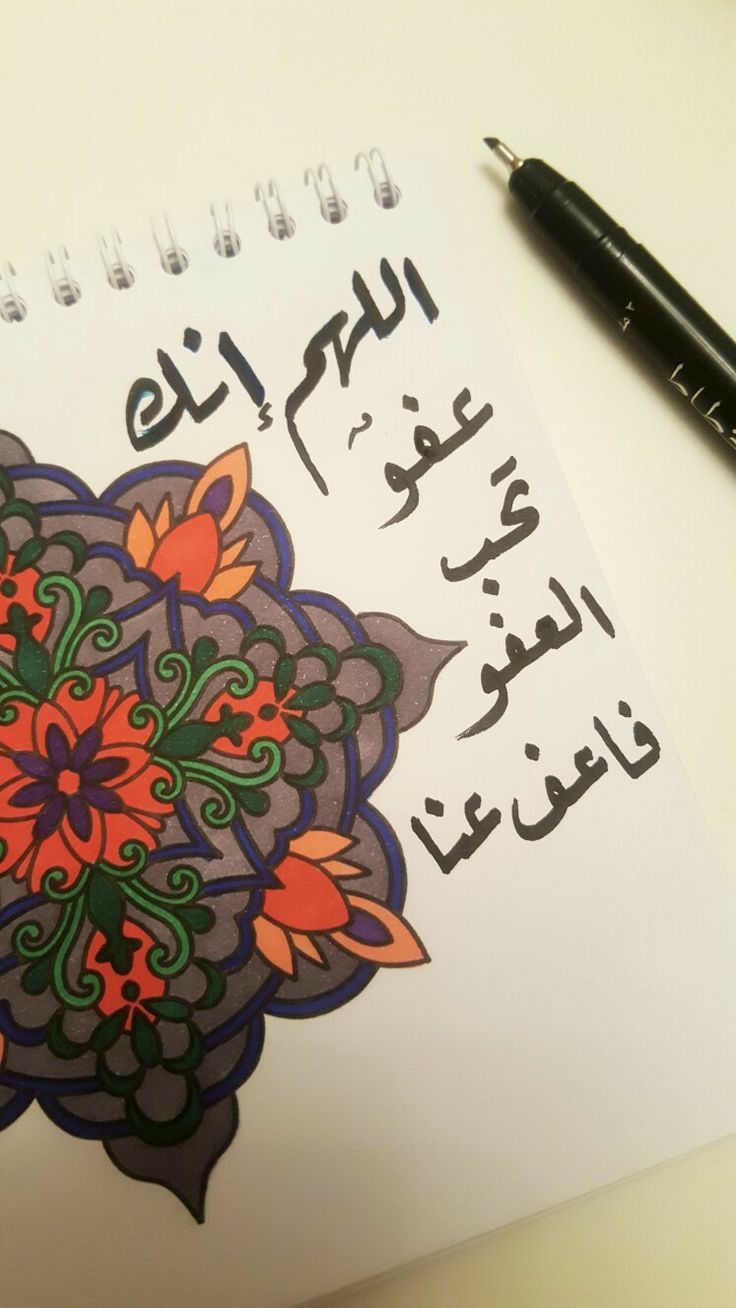 اللهم إنك
عفوٌ
تحَب
العفو
فاعف عنا